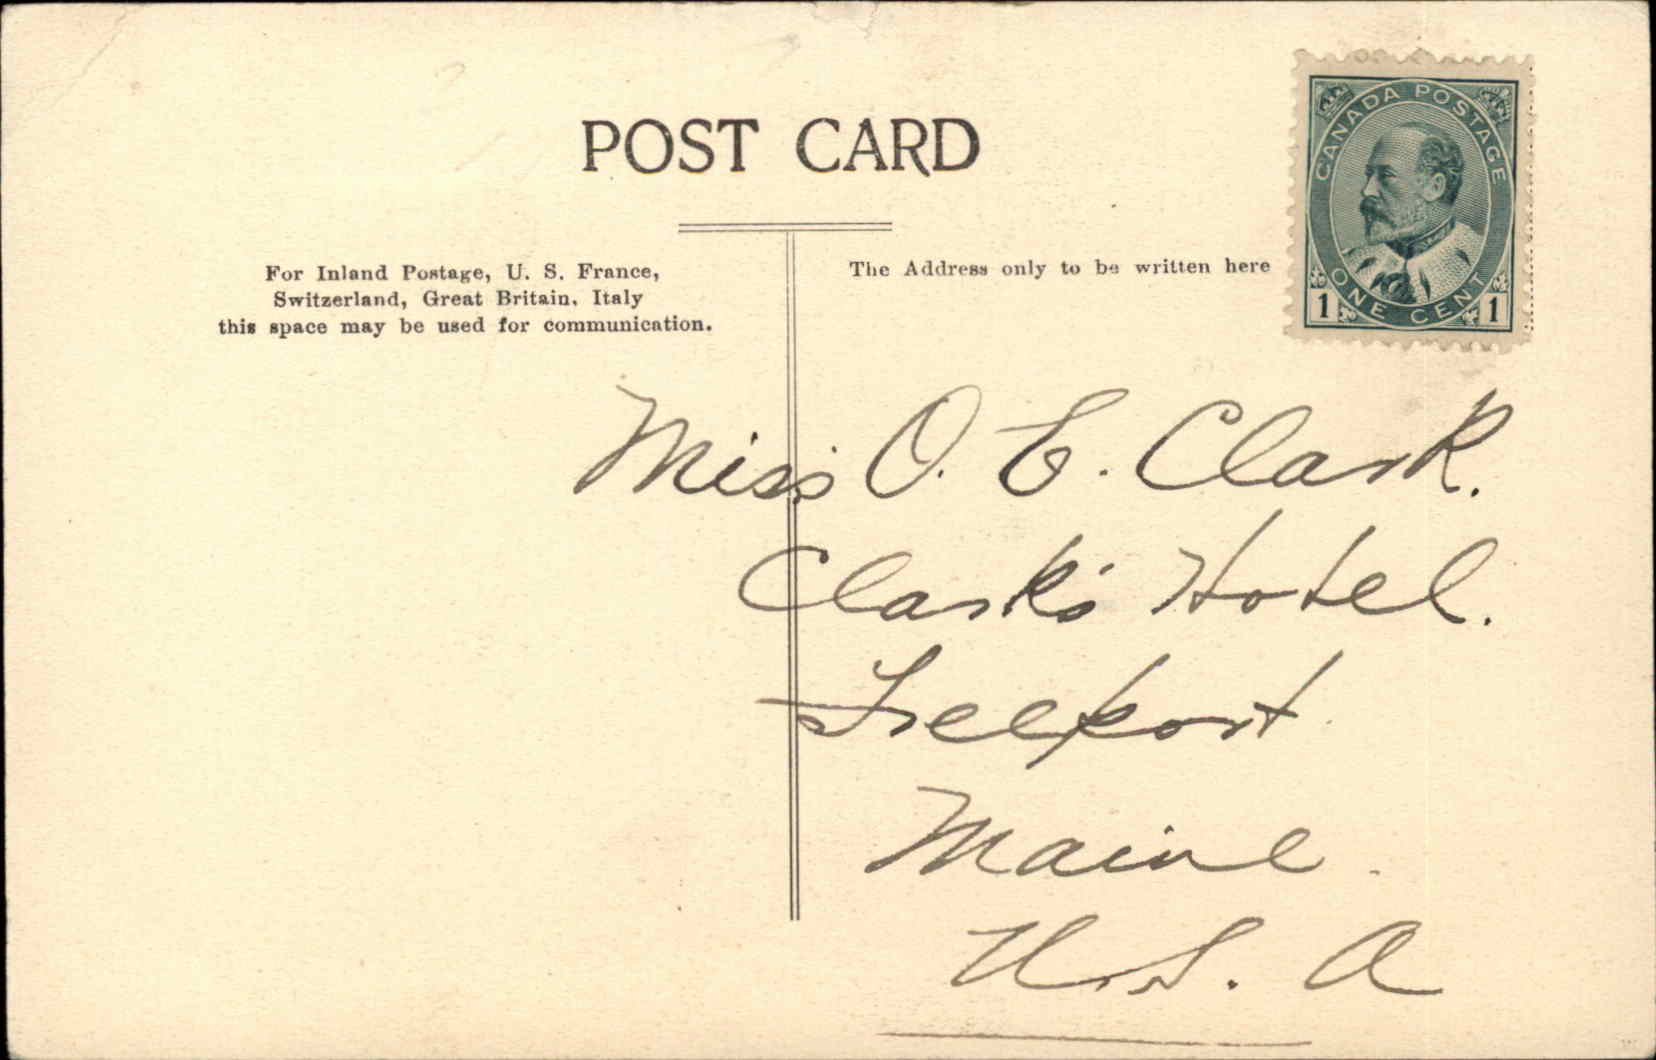 POST CARD
CANADA POSTAGE
ONE CENT
1 1
For Inland Postage, U. S. France,
Switzerland, Great Britain, Italy
this space may be used for communication.
The Address only to be written here
Miss O. E. Clark.
Clark's Hotel.
Freeport
Maine.
U.S. A